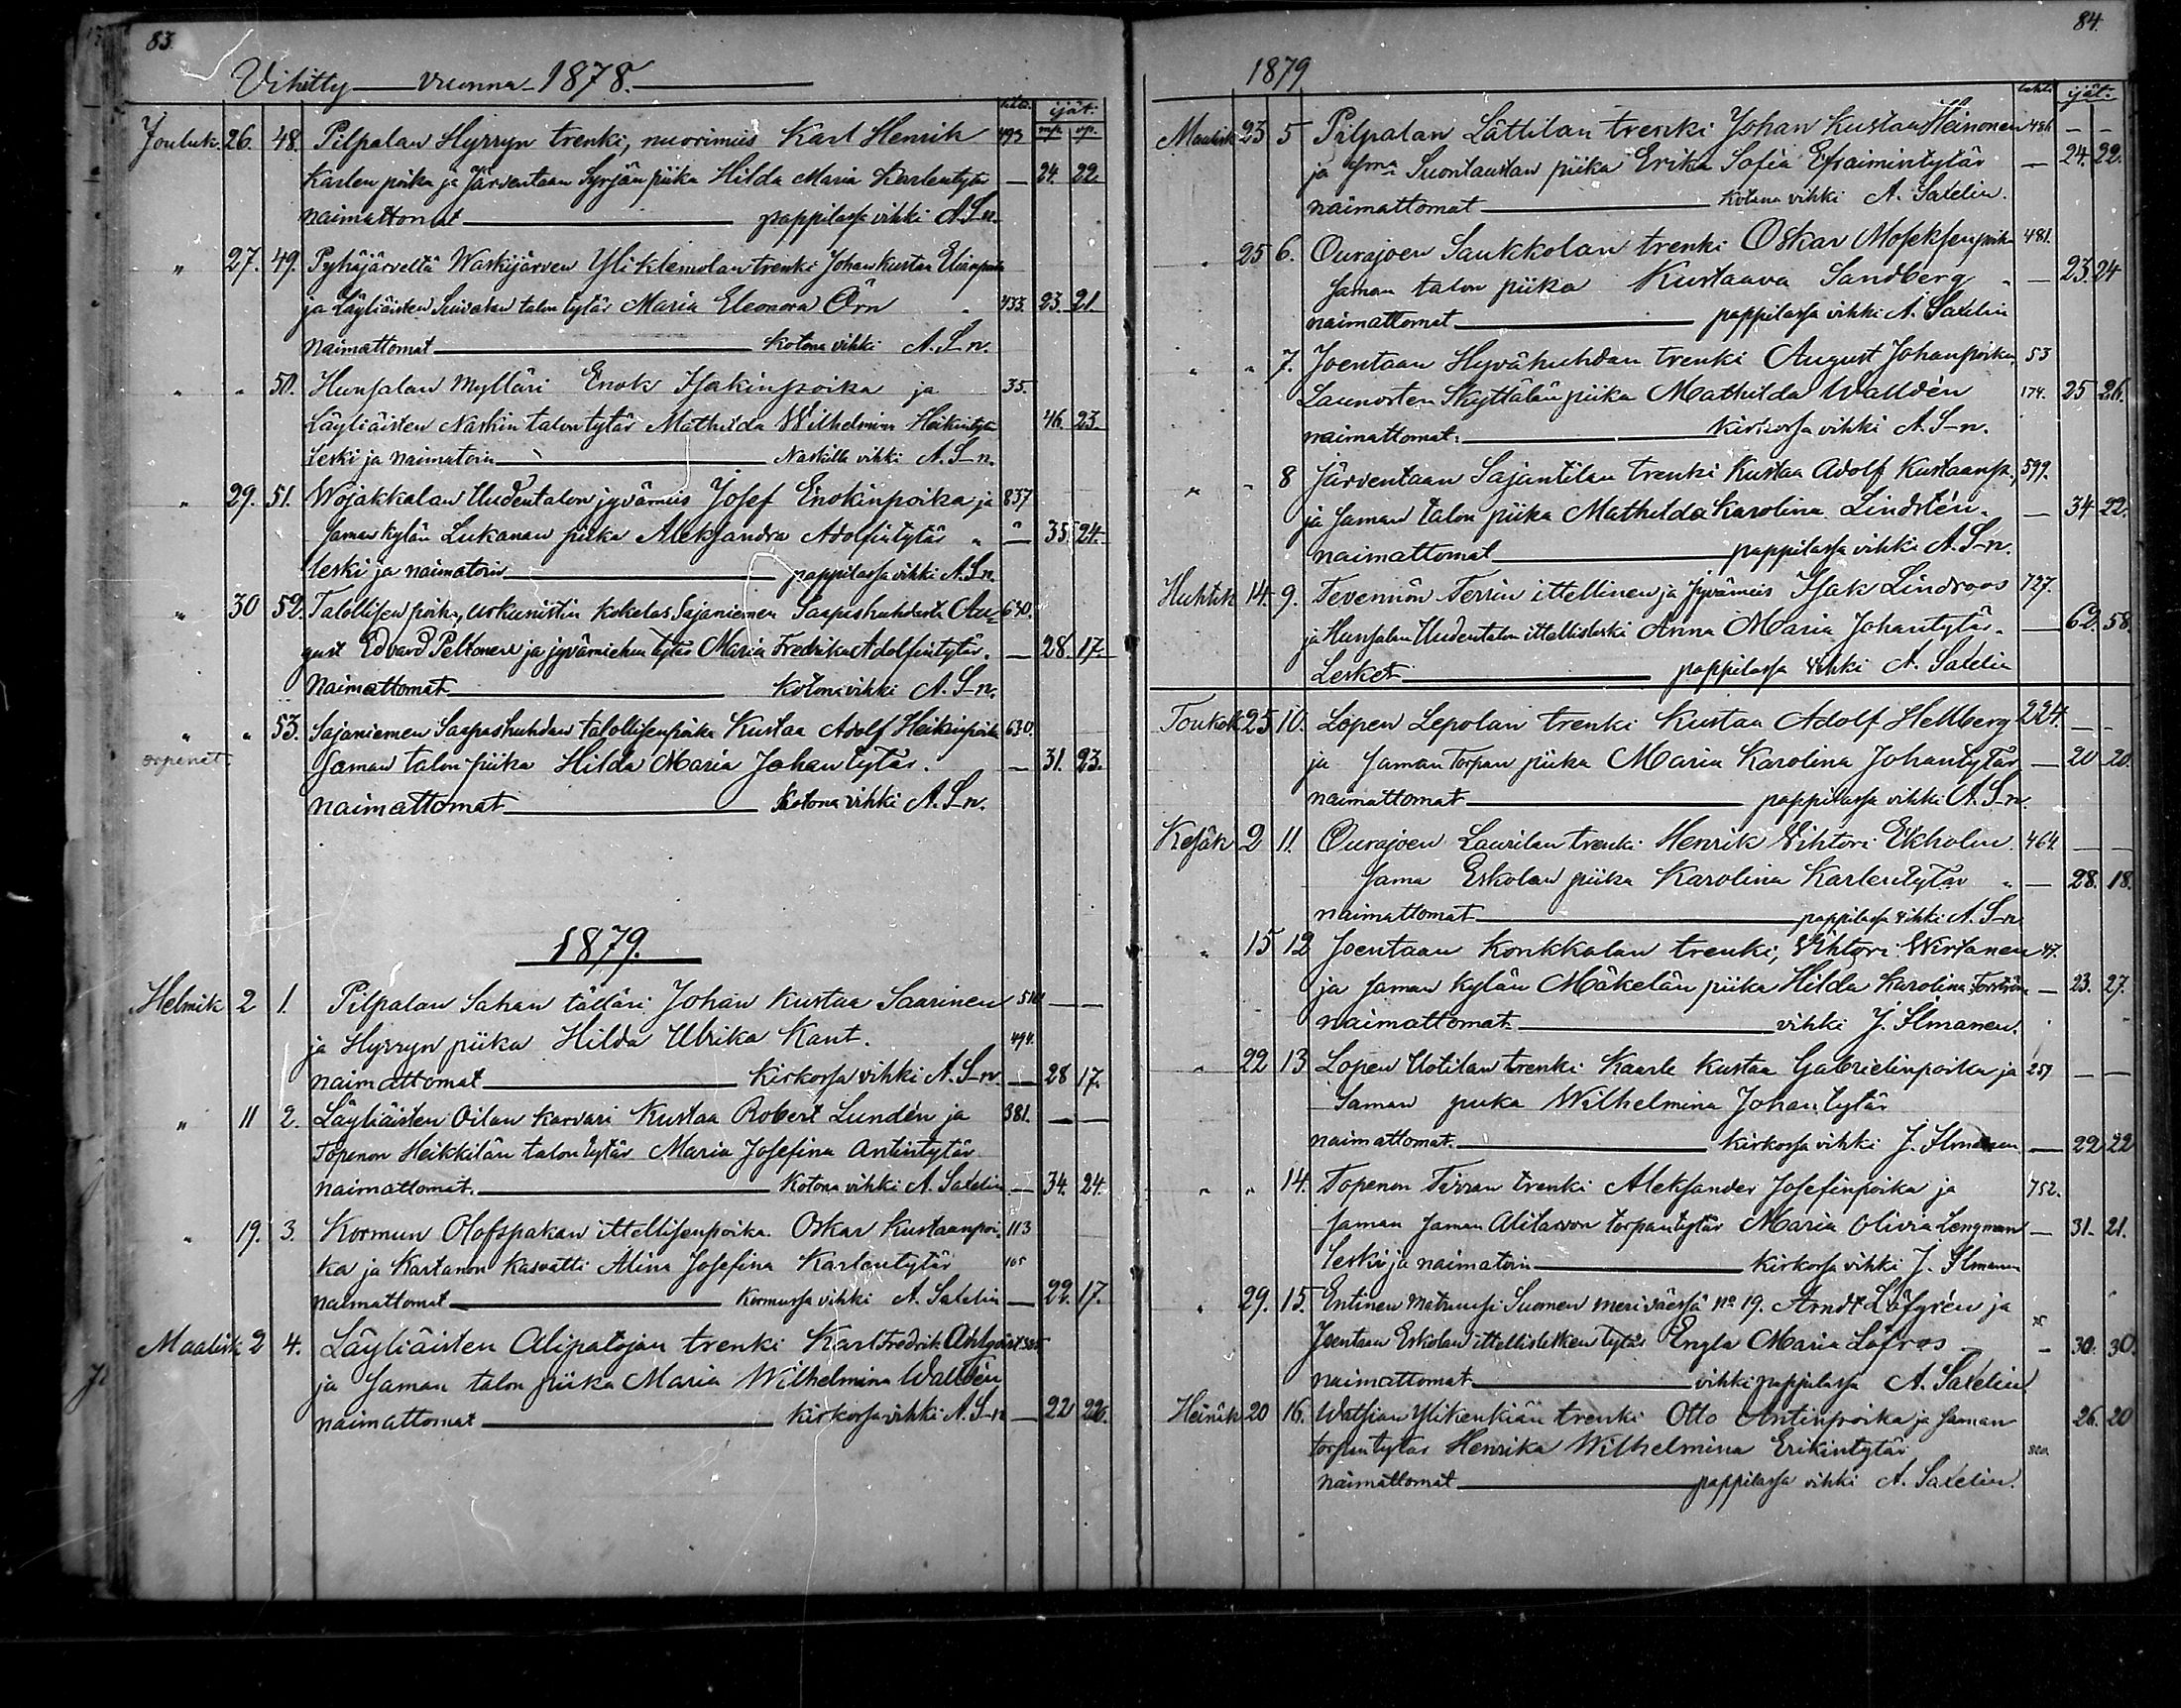 83.
Vihitty vuonna 1878.
lehti. ijät.
mp. vp.
Jouluk. 26. 48. Pilpalan Hyrryn trenki, nuorimies Karl Henrik 493
Karlen poika ja Järventaan Syrjän piika Hilda Maria Karlentytär — 24. 22.
naimattomat pappilassa vihki A. S-n.
" 27. 49. Pyhäjärveltä Waskijärven Yliklemolan trenki Johan Kustaa Elianpoika
ja Läyliäisten talon tytär Maria Eleonora Örn " 433. 23. 21.
naimattomat Kotona vihki A. S-n.
" " 50. Hunsalan mylläri Enok Isakinpoika ja 35.
Läyliäisten Naskin talon tytär Mathilda Wilhelmina Heikintytär 46. 23.
Leski ja naimatoin Naskilla vihki A. S-n.
" 29. 51. Wojakkalan Uudentalon jyvämies Josef Enokinpoika ja 837
saman kylän Lukanan piika Aleksandra Adolfintytär " — 35. 24.
leski ja naimatoin pappilassa vihki A. S-n.
" 30 52. Talollisen poika, urkunistin kokelas Sajaniemen Saapashuhdasta Au= 630.
gust Edvard Peltonen ja jyvämiehen tytär Maria Fredrika Adolfintytär. — 28. 17.
Naimattomat Kotona vihki A. S-n.
" " 53. Sajaniemen Saapashuhdan talollisenpoika Kustaa Adolf Heikinpoika 630.
orpenet. saman talon piika Hilda Maria Johantytär. — 31. 23.
naimattomat Kotona vihki A. S-n.
1879.
Helmik 2 1. Pilpalan Sahan tälläri Johan Kustaa Saarinen — —
ja Hyrryn piika Hilda Ulrika Kant. 494.
naimattomat Kirkossa vihki A. S-n. — 28 17.
" 11 2. Läyliäisten Oilan karvari Kustaa Robert Lundén ja 381. — —
Topenon Heikkilän talon tytär Maria Josefina Antintytär
naimattomat. Kotona vihki A. Saxelin — 34. 24.
" 19. 3. Kormun Olofspakan ittellisenpoika Oskar Kustaanpoi= 113
ka ja Kartanon kasvatti Alina Josefina Karlentytär 105
naimattomat Kormussa vihki A. Saxelin — 22. 17.
Maalisk 2 4. Läyliäisten Alipatojan trenki Karl Fredrik Ahlqvist
ja saman talon piika Maria Wilhelmina Walldén
naimattomat Kirkossa vihki A. S-n — 22 22.
84.
1879
lehti. ijät.
Maalisk 23 5 Pilpalan Lättilan trenki Johan Kustaa Heinonen 486 — —
ja Suontaustan piika Erika Sofia Efraimintytär — 24. 22.
naimattomat Kotona vihki A. Saxelin.
" 25 6. Ourajoen Saukkolan trenki Oskar Moseksenpoika 481.
saman talon piika Kustaava Sandberg " — 23. 24
naimattomat pappilassa vihki A. Saxelin
" " 7. Joentaan Hyvähuhdan trenki August Johanpoika 53
Launosten Skyttälän piika Mathilda Walldén 174. 25 26.
naimattomat. Kirkossa vihki A. S-n.
" " 8 Järventaan Sajantilan trenki Kustaa Adolf Kustaanp. 599.
ja saman talon piika Mathilda Karolina Lindstén. — 34 22.
naimattomat pappilassa vihki A. S-n.
Huhtik 14. 9. Tevennön Terrin ittellinen ja jyvämies Isak Lindroos 727.
ja Hunsalan Uudentalon ittellisleski Anna Maria Johantytär. — 62. 58.
Lesket pappilassa vihki A. Saxelin
Toukok 25 10. Lopen Lepolan trenki Kustaa Adolf Hellberg 224. — —
ja saman torpan piika Maria Karolina Johantytär — 20 20.
naimattomat pappilassa vihki A. S-n.
Kesäk 2 11. Ourajoen Laurilan trenki Henrik Vihtori Ekholm 464. — —
sama Eskolan piika Karolina Karlentytär " — 28. 18.
naimattomat pappilassa vihki A. S-n
" 15 12 Joentaan Konkkalan trenki, Vihtori Wirtanen 47.
ja saman kylän Mäkelän piika Hilda Karolina Forsström — 23. 27.
naimattomat vihki J. Ilmanen.
" 22 13 Lopen Uotilan trenki Kaarle Kustaa Gabrielinpoika ja 257 — —
Saman piika Wilhelmina Johantytär
naimattomat. kirkossa vihki J. Ilmanen — 22 22
" " 14. Topenon Terran trenki Aleksander Josefinpoika ja 752.
saman saman Alitarron torpantytär Maria Olivia Lengman — 31. 21.
leski ja naimatoin kirkossa vihki J. Ilmanen
" 29. 15. Entinen matruusi Suomen meriväessä No 19. Arndt Löfgrén ja
Joentaan Eskolan ittellislesken tytär Engla Maria Löfroos — 30. 30.
naimattomat vihki pappilassa A. Saxelin
Heinäk 20 16. Watsian Ylikenkiän trenki Otto Antinpoika ja saman 26. 20
torpan tytär Henrika Wilhelmina Erikintytär 800.
naimattomat pappilassa vihki A. Saxelin.